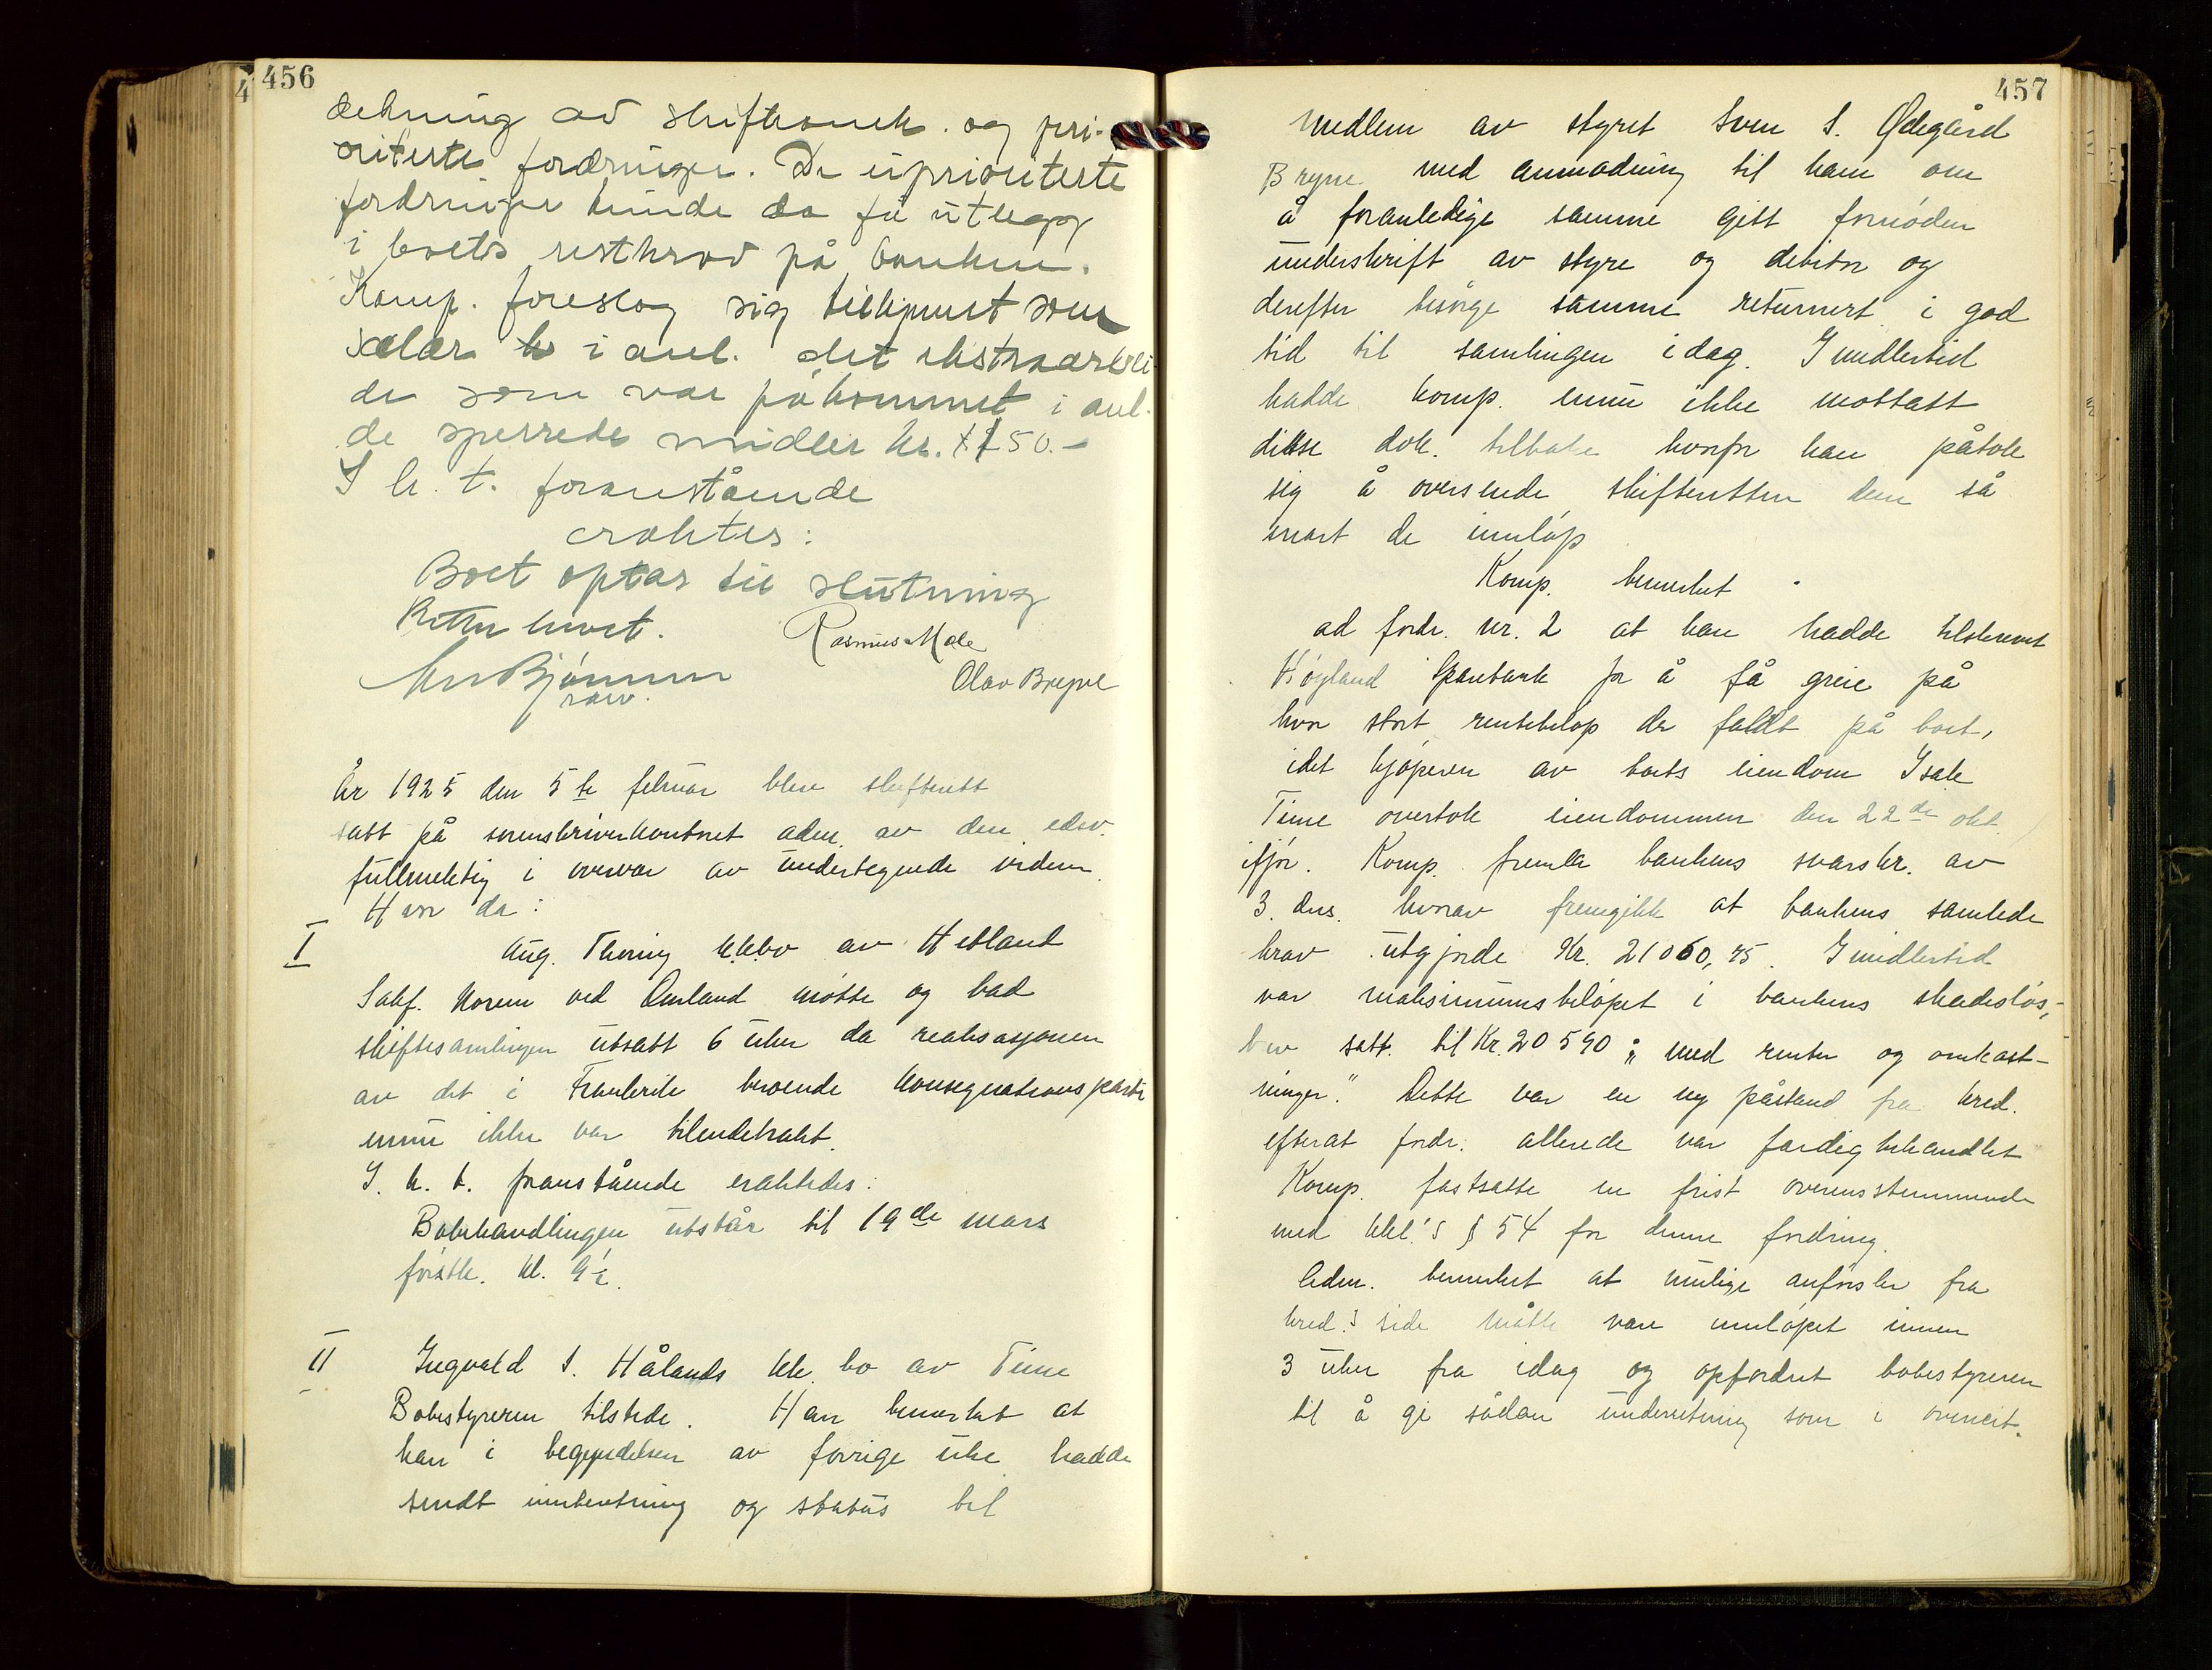 456
dekning av skifteomk. og pri-
oriterte fordringer. De uprioriterte
fordringer kunde da få utlegg
i boets restkrav på banken.
Komp. foreslog sig tilkjennt som
salær i anl. det ekstraarbei-
de som var påkommet i anl.
de sperrede midler kr. 150.-
I h. t. foranstående
eraktes:
Boet optas til slutning
Retten hevet.
Rasmus Mæle
Olav Bryne
År 1925 den 5te februar blev skifterett
satt på sorenskriverkontoret adm. av den edsv.
fullmektig i overvær av undertegnede vidner.
Hvor da:
I
Aug. Thoring kk.bo av Hetland
Sakf. Norem ved Omland møtte og bad
skiftesamlingen utsatt 6 uker da realisasjonen
av det i Frankrike beroende konsignationsparti
ennu ikke var tilendebrakt.
I. h. t. foranstående eraktedes:
Bobehandlingen utstår til 19de mars
førstk. kl. 9½.
II
Ingvald S. Hålands kk. bo av Time
Bobestyreren tilstede. Han bemerket at
han i begynnelsen av forrige uke hadde
sendt innberetning og status til
457
medlem av styret Sven S. Ødegård
Bryne med anmodning til ham om
å foranledige samme gitt fornøden
underskrift av styre og debitor og
derefter besørge samme returnert i god
tid til samlingen idag. Imidlertid
hadde komp. ennu ikke mottatt
disse dok. tilbake hvorfor han påtok
sig å oversende skifteretten dem så
snart de innløp
Komp. bemerket
ad fordr. nr. 2 at han hadde tilskrevet
Høgland Sparebank for å få greie på
hvor stort rentebeløp der faldt på boet,
idet kjøperen av boets eiendom Isak
Time overtok eiendommen den 22de okt.
ifjor. Komp. fremla bankens svarskr. av
3. ds. hvorav fremgikk at bankens samlede
krav utgjorde Kr. 21060,75. Imidlertid
var maksimumsbeløpet i bankens skadesløs-
brev satt til Kr. 20590 „med renter og omkost-
ninger." Dette var en ny påstand fra kred.
efterat fordr. allerede var færdigbehandlet
Komp. fastsatte en frist overensstemmende
med kkl.'s § 54 for denne fordring.
Adm. bemerket at mulige anførsler fra
kred.s side måtte være innløpet innen
3 uker fra idag og opfordret bobestyreren
til å gi sådan underretning som i